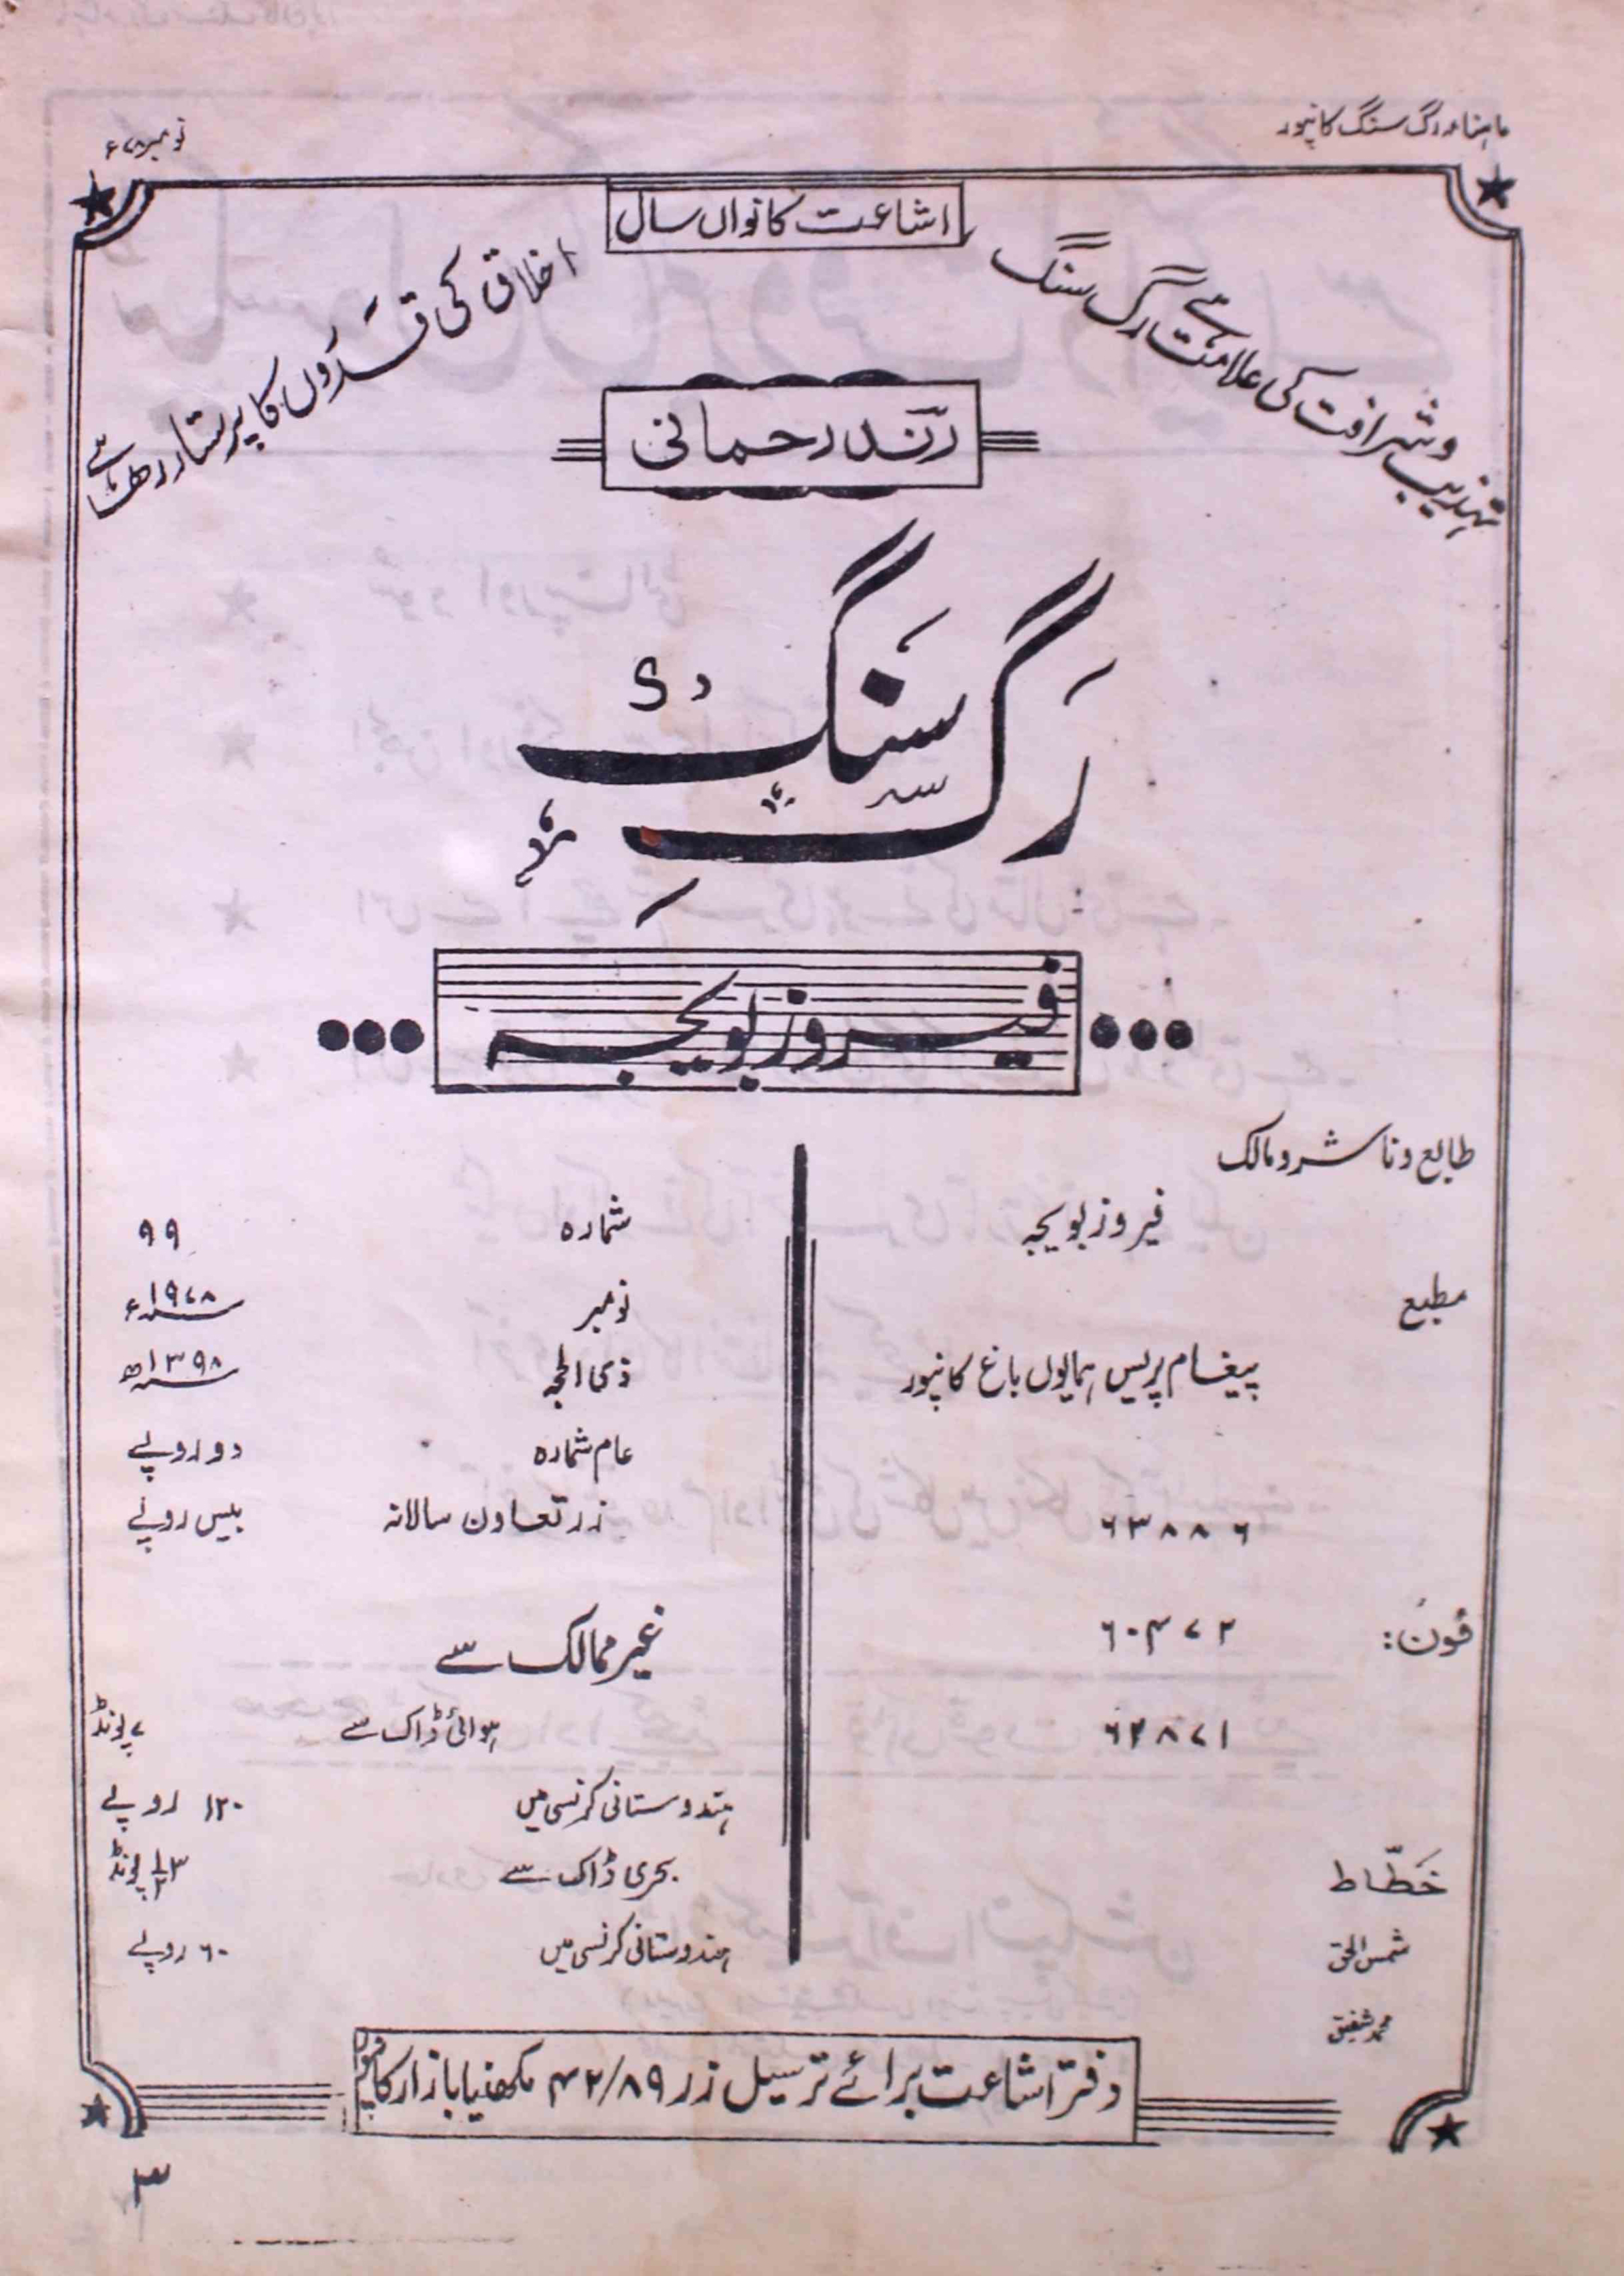 ماہنامہ رگ سنگ کانپور
نومبر ۷۸ء
اشاعت کا نواں سال
تہذیب و شرافت کی علامت رگ سنگ ہے
اخلاق کی قدروں کا پرستار رھا ہے
رند رحمانی
رگِ سنگ
فیروز بویجہ
طابع و ناشر و مالک
فیروز بویجہ
مطبع
پیغام پریس ہمایوں باغ کانپور
۶۳۸۸۶
فون: ۶۰۴۷۲
۶۲۸۷۱
خطّاط
شمس الحق
محمد شفیق
شمارہ ۹۹
نومبر ۱۹۷۸ء
ذی الحجہ ۱۳۹۸ھ
عام شمارہ دو روپے
زر تعاون سالانہ بیس روپے
غیر ممالک سے
ہوائی ڈاک سے ۷ پونڈ
ہندوستانی کرنسی میں ۱۲۰ روپے
بحری ڈاک سے ۳ ۱/۲ پونڈ
ہندوستانی کرنسی میں ۶۰ روپے
دفتر اشاعت برائے ترسیل زر ۴۲/۸۹ مکھنیا بازار کانپور
۳